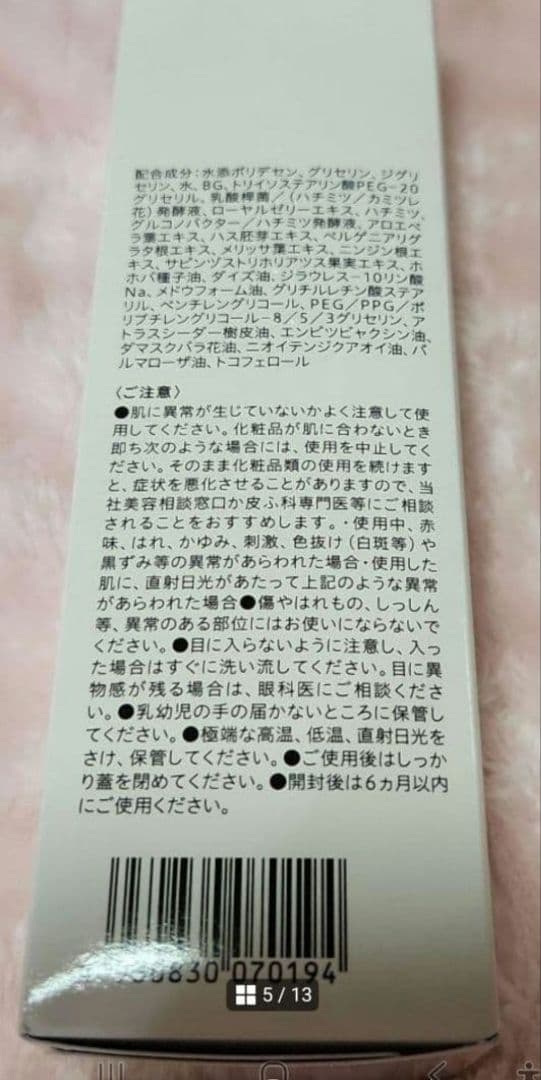 配合成分：水添ポリデセン、グリセリン、ジグリ
セリン、水、BG、トリイソステアリン酸PEG-20
グリセリル、乳酸桿菌／(ハチミツ／カミツレ
花)発酵液、ローヤルゼリーエキス、ハチミツ、
グルコノバクター／ハチミツ発酵液、アロエベ
ラ葉エキス、ハス胚芽エキス、ベルゲニアリグ
ラタ根エキス、メリッサ葉エキス、ニンジン根エ
キス、サピンヅストリホリアツス果実エキス、ホ
ホバ種子油、ダイズ油、ジラウレス-10リン酸
Na、メドウフォーム油、グリチルレチン酸ステア
リル、ペンチレングリコール、PEG/PPG/ポ
リブチレングリコール-8/5/3グリセリン、ア
トラスシーダー樹皮油、エンピツビャクシン油、
ダマスクバラ花油、ニオイテンジクアオイ油、パ
ルマローザ油、トコフェロール
〈ご注意〉
●肌に異常が生じていないかよく注意して使
用してください。化粧品が肌に合わないとき
即ち次のような場合には、使用を中止してく
ださい。そのまま化粧品類の使用を続けます
と、症状を悪化させることがありますので、当
社美容相談窓口か皮ふ科専門医等にご相談
されることをおすすめします。・使用中、赤
味、はれ、かゆみ、刺激、色抜け(白斑等)や
黒ずみ等の異常があらわれた場合・使用した
肌に、直射日光があたって上記のような異常
があらわれた場合●傷やはれもの、しっしん
等、異常のある部位にはお使いにならないで
ください。●目に入らないように注意し、入っ
た場合はすぐに洗い流してください。目に異
物感が残る場合は、眼科医にご相談くださ
い。●乳幼児の手の届かないところに保管し
てください。●極端な高温、低温、直射日光を
さけ、保管してください。●ご使用後はしっか
り蓋を閉めてください。●開封後は6ヵ月以内
にご使用ください。
070194
5 / 13